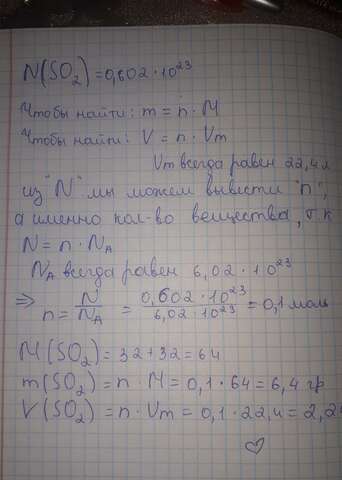 N(SO₂)=0,602·10²³
Чтобы найти: m = n · M
Чтобы найти: V = n · Vm
Vm всегда равен 22,4л
из "N" мы можем вывести "n",
а именно кол-во вещества, т.к
N = n · NA
NA всегда равен 6,02 · 10²³
⇒ n = N/NA = 0,602·10²³/6,02·10²³ = 0,1 моль
M(SO₂) = 32+32 = 64
m(SO₂) = n · M = 0,1 · 64 = 6,4 гр
V(SO₂) = n · Vm = 0,1 · 22,4 = 2,24